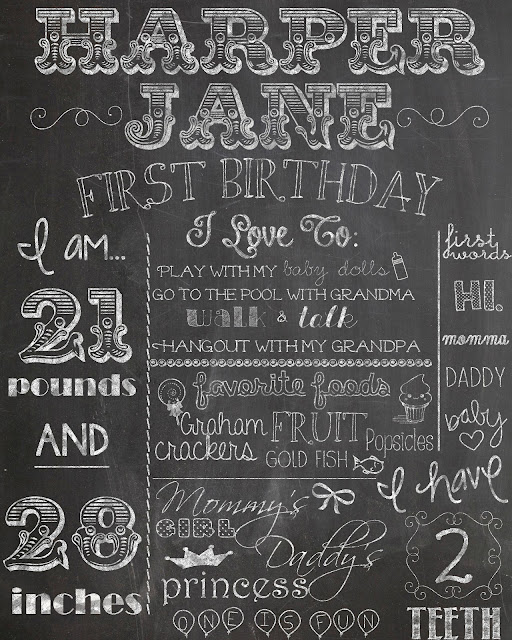 HARPER
JANE
FIRST BIRTHDAY
I am...
21
pounds
AND
28
inches
I Love To:
PLAY WITH MY baby dolls
GO TO THE POOL WITH GRANDMA
walk & talk
HANGOUT WITH MY GRANDPA
favorite foods
Graham crackers
FRUIT
Popsicles
GOLD FISH
Mommy's
GIRL
Daddy's
princess
ONE IS FUN
first words
HI.
momma
DADDY
baby
I have
2
TEETH